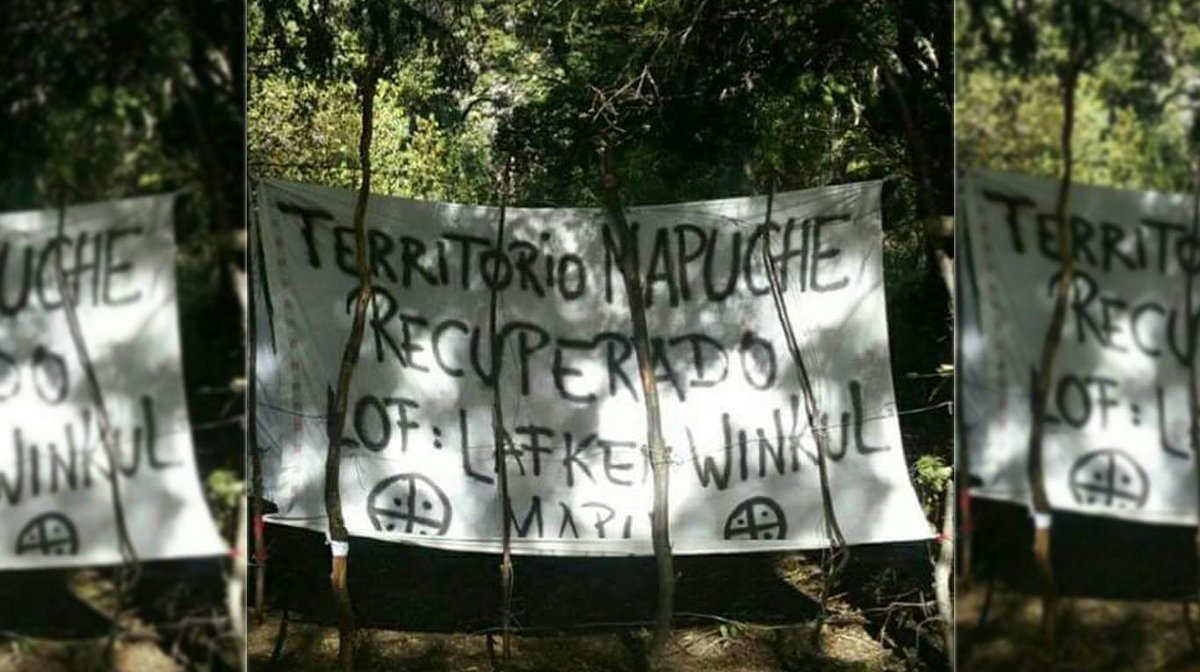 TERRITORIO MAPUCHE
RECUPERADO
LOF: LAFKEN WINKUL
MAPU